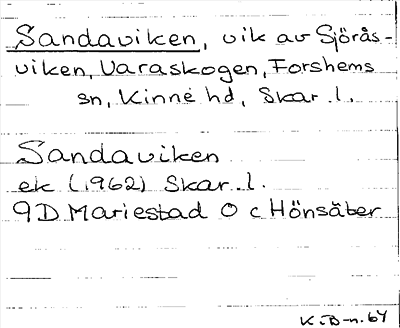 Sandaviken, vik av Sjörås-
viken, Varaskogen, Forshems
sn, Kinne hd, Skar.l.
Sandaviken
ek (1962) Skar.l.
9D Mariestad O c Hönsäter
K.B-n.64